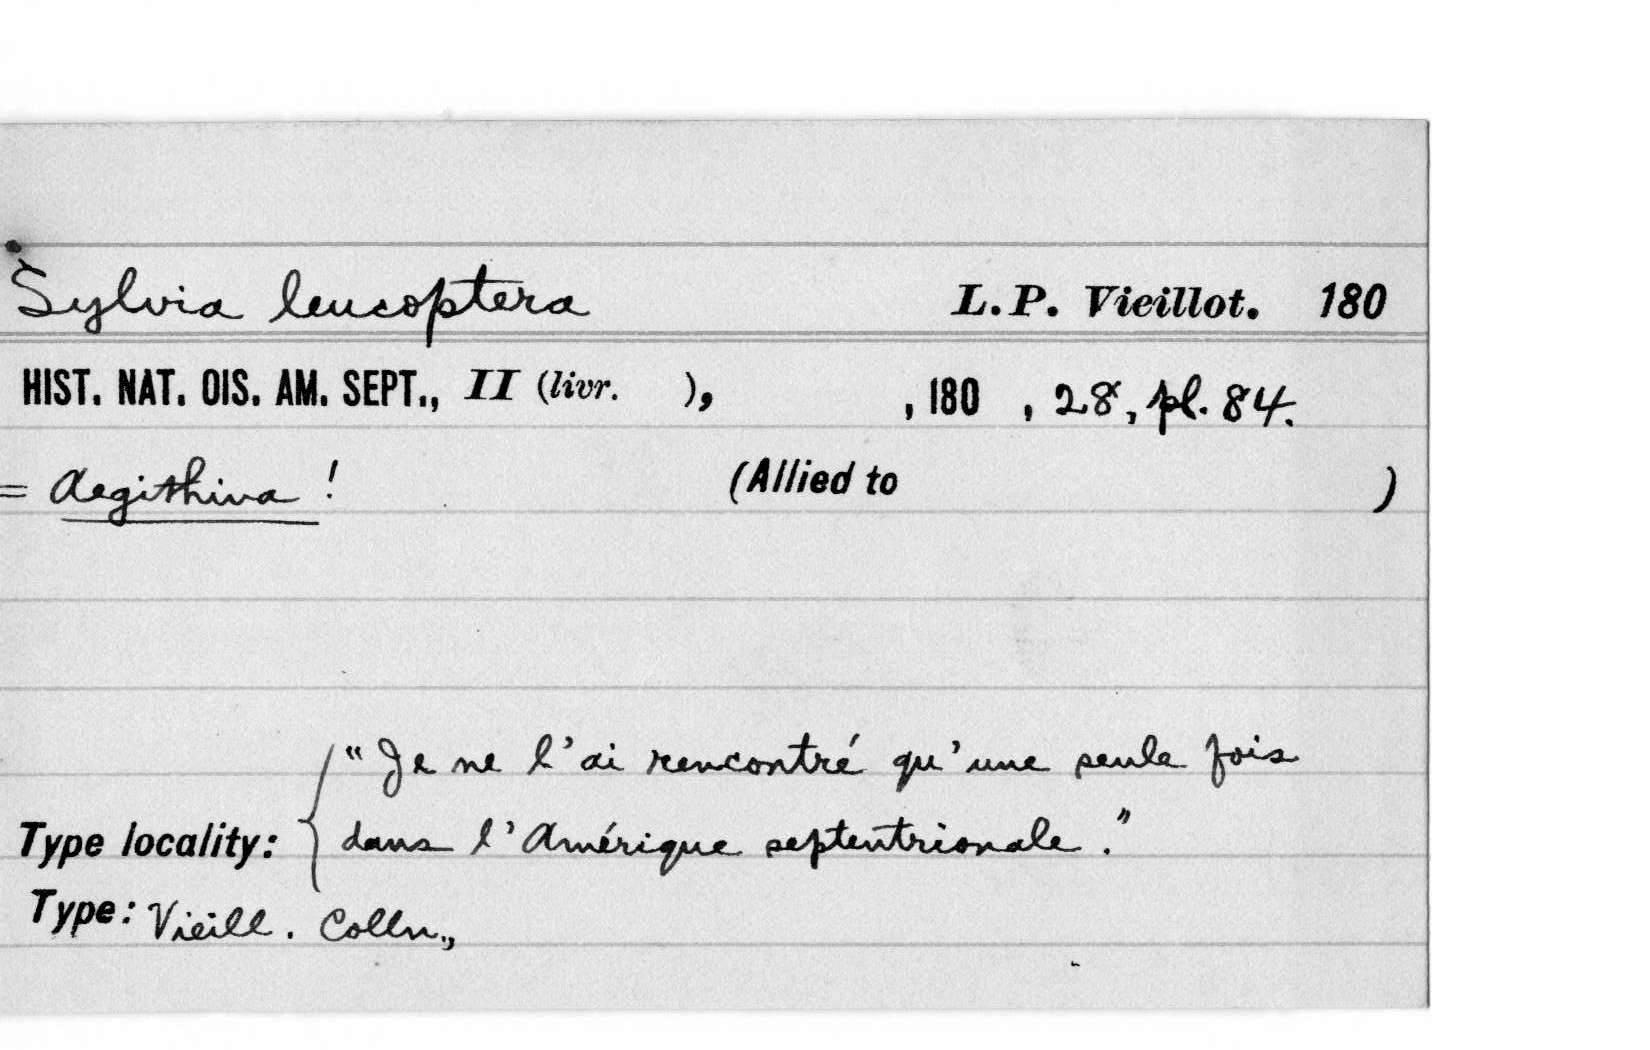 Sylvia leucoptera L.P. Vieillot. 180
HIST. NAT. OIS. AM. SEPT., II (livr. ), , 180 , 28, pl. 84.
= Aegithina ! (Allied to )
"Je ne l'ai rencontré qu'une seule fois
Type locality: { dans l'Amérique septentrionale."
Type: Vieill. Colln.,